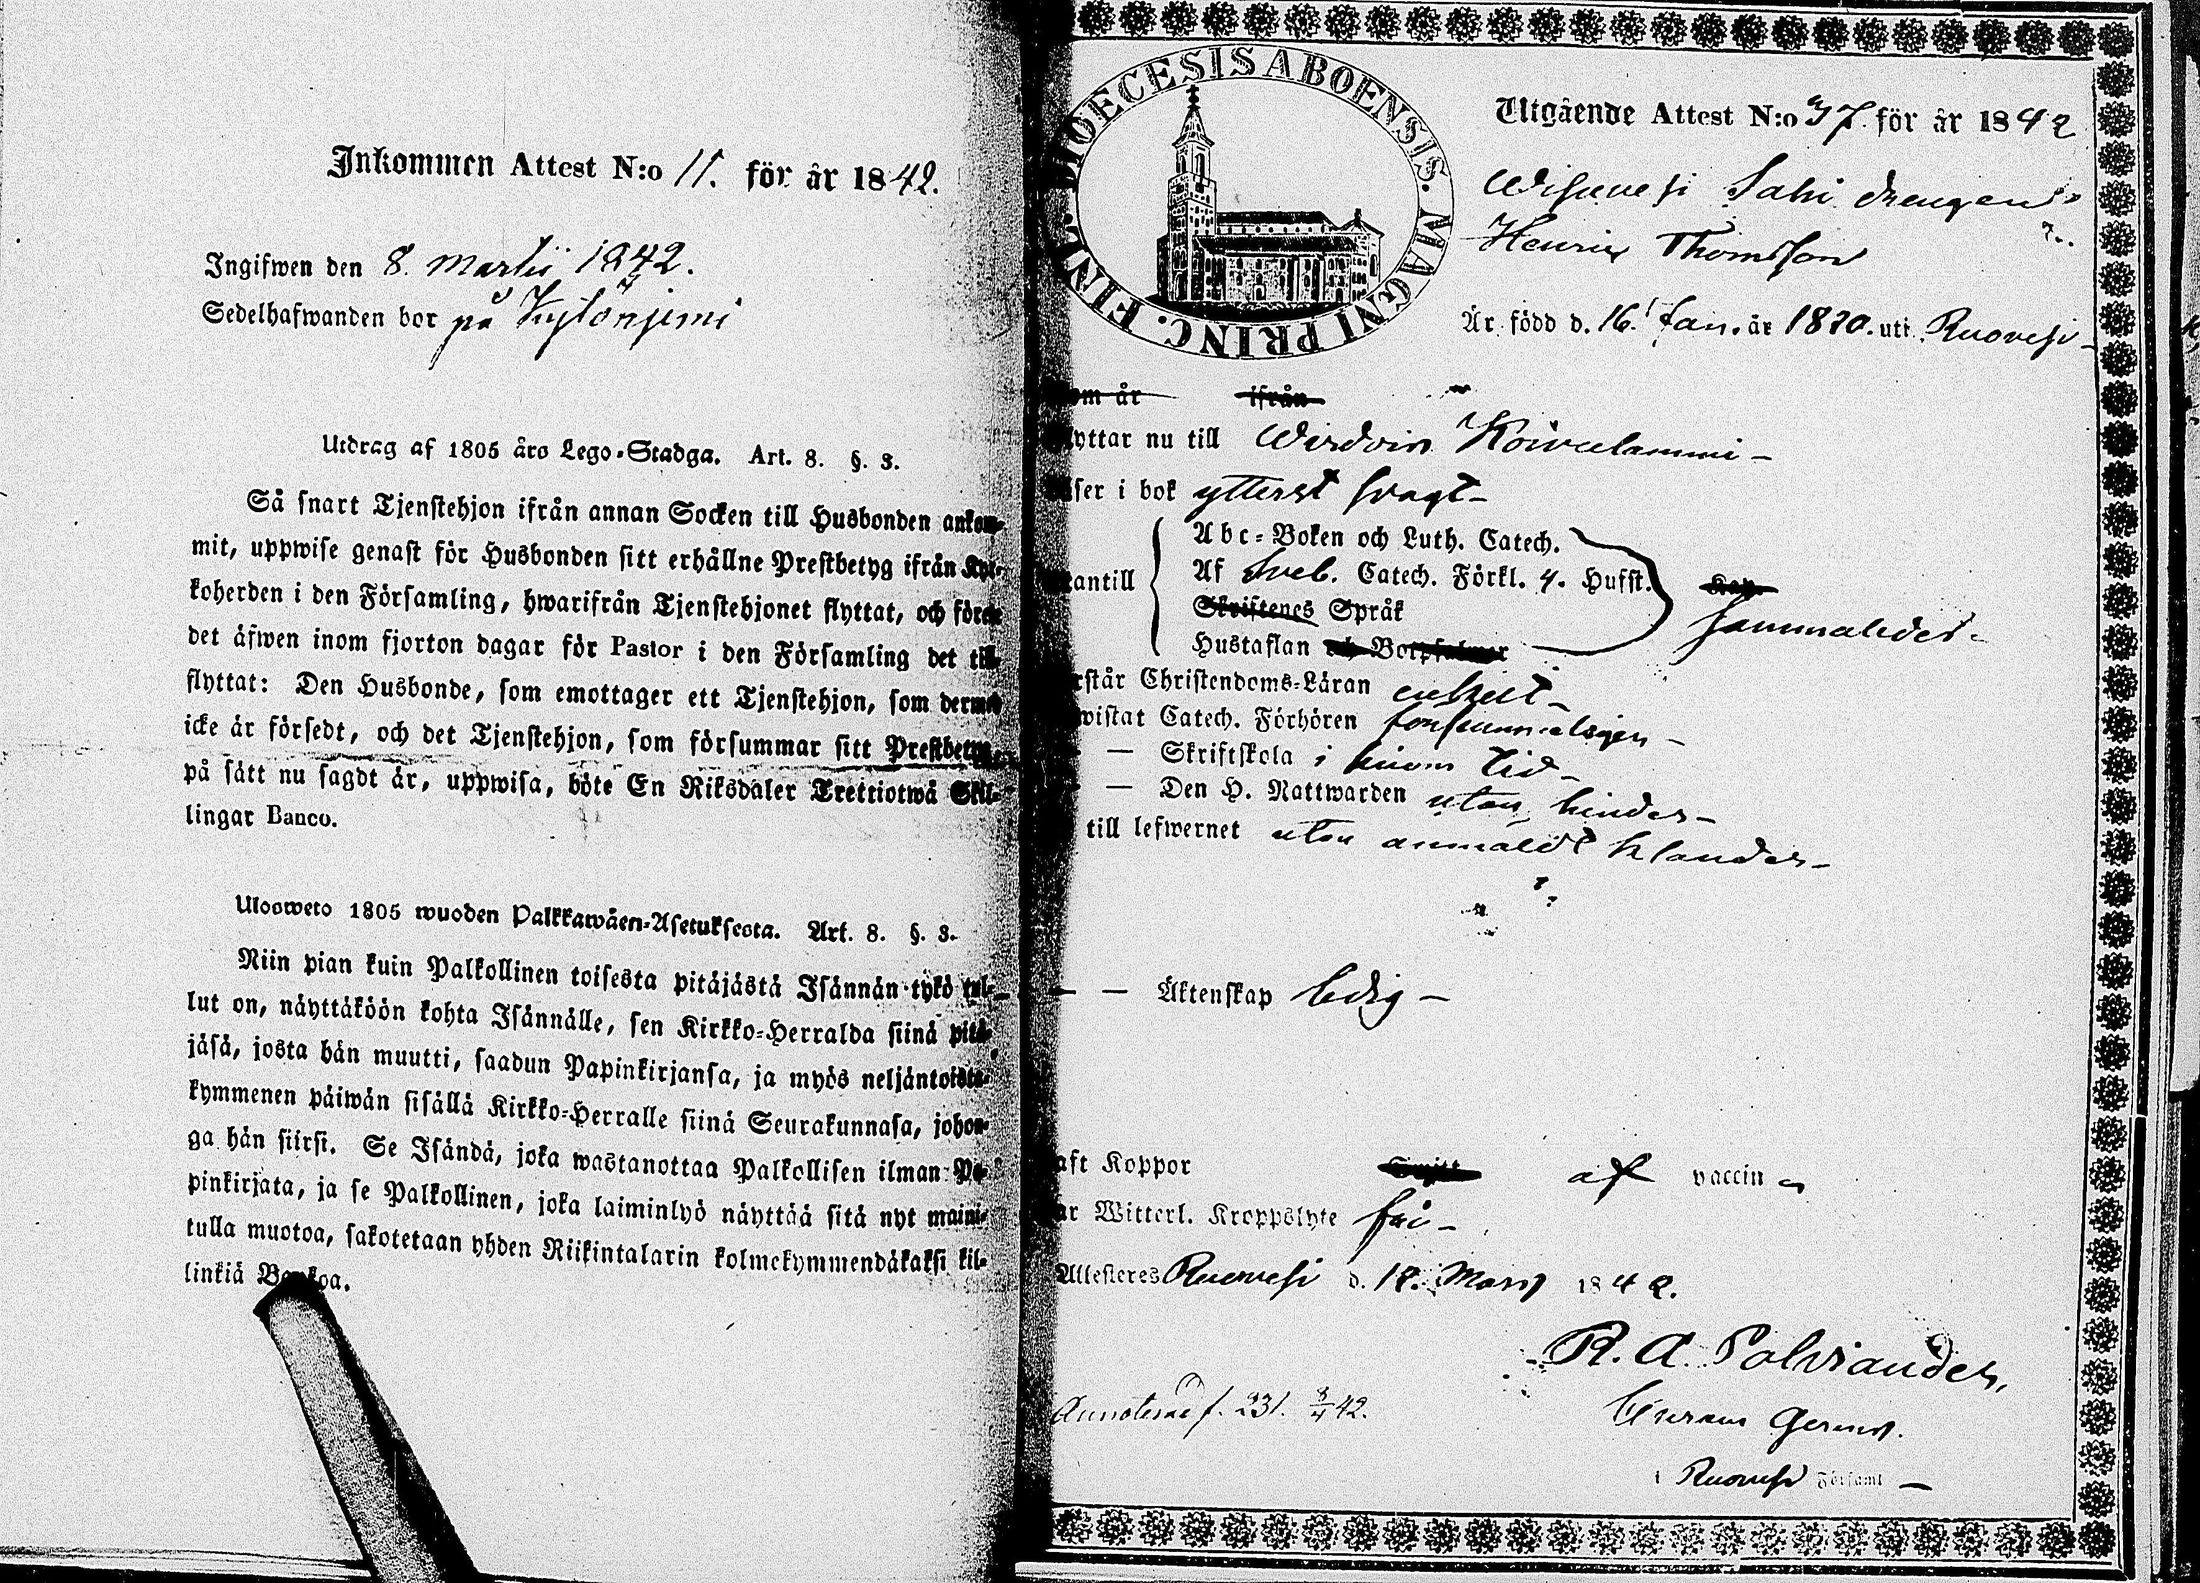 Inkommen Attest N:o 11. för år 1842.
Ingifwen den 8. Martii 1842.
Sedelhafwanden bor på
Utdrag af 1805 års Lego-Stadga. Art. 8. §. 3.
Så snart Tjenstehjon ifrån annan Socken till Husbonden ankom-
mit, uppwise genast för Husbonden sitt erhållne Prestbetyg ifrån Kyr-
koherden i den Församling, hwarifrån Tjenstehjonet flyttat, och före
det äfwen inom fjorton dagar för Pastor i den Församling det till-
flyttat: Den Husbonde, som emottager ett Tjenstehjon, som dermed
icke är försedt, och det Tjenstehjon, som försummar sitt Prestbetyg,
på sätt nu sagdt är, uppwisa, böte En Riksdaler Trettiotwå Skil-
lingar Banco.
Ulosweto 1805 wuoden Palkkawäen-Asetuksesta. Art. 8. §. 3.
Niin pian kuin Palkollinen toisesta pitäjästä Isännän tykö tul-
lut on, näyttäköön kohta Isännälle, sen Kirkko-Herralda siinä pitä-
jäsä, josta hän muutti, saadun Papinkirjansa, ja myös neljäntoista-
kymmenen päiwän sisällä Kirkko-Herralle siinä Seurakunnasa, johon-
ga hän siirsi. Se Isändä, joka wastanottaa Palkollisen ilman Pa-
pinkirjata, ja se Palkollinen, joka laiminlyö näyttää sitä nyt maini-
tulla muotoa, sakotetaan yhden Riikintalarin kolmekymmendäkaksi kil-
linkiä Bankoa.
DIOECESIS ABOENSIS. MAGNI PRINC. FINL.
Utgående Attest N:o 37. för år 1842
Sahi drengen
Henric Thomsson
Är född d. 16. Jan. år 1820. uti Ruovesi
om år ifrån
yttar nu till Koivulammi
ser i bok ytterst swagt
Abc-Boken och Luth. Catech.
antill Af Sveb. Catech. Förkl. 4. Hufst. Kap.
Skriftenes Språk
Hustaflan och Botpsalmer
rstår Christendoms-Läran enkelt
wistat Catech. Förhören försummeligen
— Skriftskola i sinom tid
— Den H. Nattwarden utan hinder
till lefwernet utan anmäldt klander
— — Äktenskap ledig
aft Koppor af vaccin
ar Witterl. Kroppslyte fri
Attesteres Ruovesi d. 18. Mars 1842.
R. A. Polviander,
i Ruovesi Församl